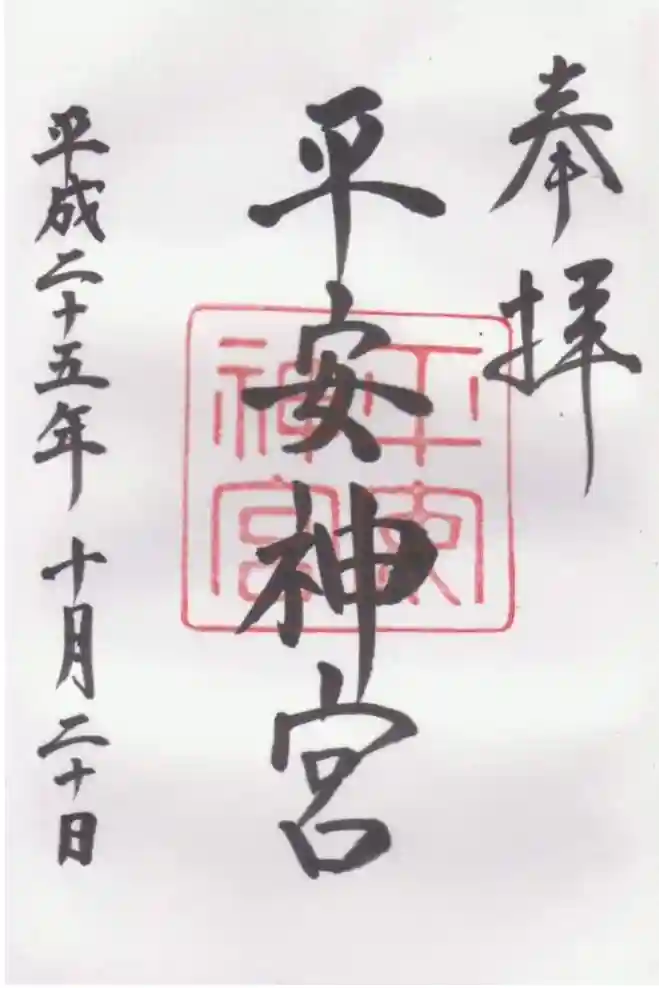 奉拝
平安神宮
平安神宮
平成二十五年 十月二十日